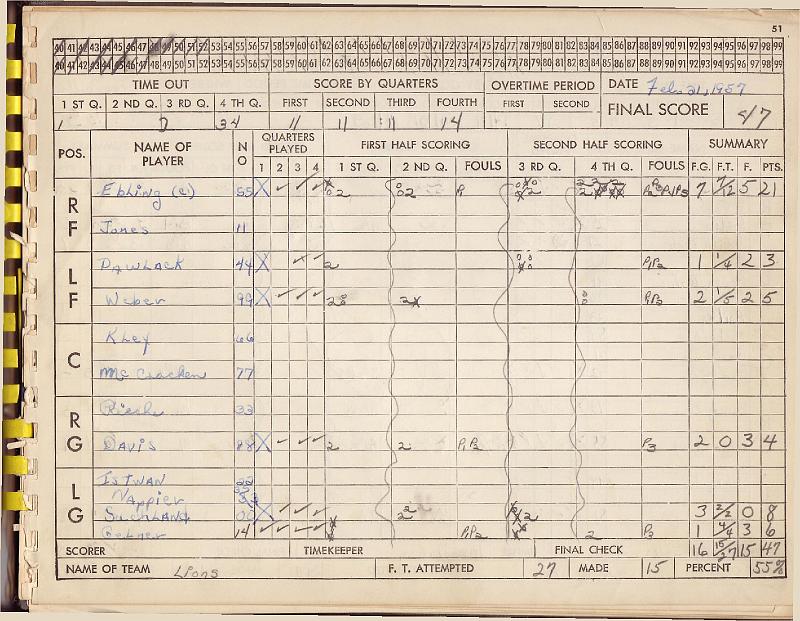 51
40 41 42 43 44 45 46 47 48 49 50 51 52 53 54 55 56 57 58 59 60 61 62 63 64 65 66 67 68 69 70 71 72 73 74 75 76 77 78 79 80 81 82 83 84 85 86 87 88 89 90 91 92 93 94 95 96 97 98 99
40 41 42 43 44 45 46 47 48 49 50 51 52 53 54 55 56 57 58 59 60 61 62 63 64 65 66 67 68 69 70 71 72 73 74 75 76 77 78 79 80 81 82 83 84 85 86 87 88 89 90 91 92 93 94 95 96 97 98 99
TIME OUT SCORE BY QUARTERS OVERTIME PERIOD DATE Feb. 21, 1957
1 ST Q. 2 ND Q. 3 RD Q. 4 TH Q. FIRST SECOND THIRD FOURTH FIRST SECOND FINAL SCORE 47
11 11 11 14
POS. NAME OF PLAYER NO QUARTERS PLAYED FIRST HALF SCORING SECOND HALF SCORING SUMMARY
1 2 3 4 1 ST Q. 2 ND Q. FOULS 3 RD Q. 4 TH Q. FOULS F.G. F.T. F. PTS.
RF Ebling (c) 55 7 7/12 5 21
Jones 11
LF Pawlack 44 2 P1P2 1 1/4 2 3
Weber 99 2 1/5 2 5
C Kley 66
McCracken 77
RG 33
Davis 88 2 2 P1P2 P3 2 0 3 4
LG Istwan
Nappier
Suchland 00 3 2/2 0 8
14 P1P2 2 P3 1 4/4 3 6
16 15/27 15 47
SCORER TIMEKEEPER FINAL CHECK
NAME OF TEAM Lions F. T. ATTEMPTED 27 MADE 15 PERCENT 55%